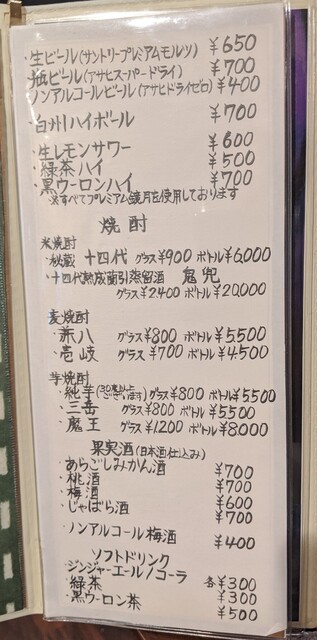 ・生ビール(サントリープレミアムモルツ) ¥650
・瓶ビール(アサヒスーパードライ) ¥700
・ノンアルコールビール(アサヒドライゼロ) ¥400
・白州ハイボール ¥700
・生レモンサワー ¥600
・緑茶ハイ ¥500
・黒ウーロンハイ ¥700
※すべてプレミアム鏡月を使用しております
焼酎
米焼酎
・秘蔵 十四代 グラス¥900 ボトル¥6,000
・十四代熟成蘭引蒸留酒 鬼兜
グラス¥2,400 ボトル¥20,000
麦焼酎
・兼八 グラス¥800 ボトル¥5,500
・壱岐 グラス¥700 ボトル¥4,500
芋焼酎
・純芋(30種以上ございます) グラス¥800 ボトル¥5500
・三岳 グラス¥800 ボトル¥5500
・魔王 グラス¥1200 ボトル¥8000
果実酒(日本酒仕込み)
・あらごしみかん酒 ¥700
・桃酒 ¥700
・梅酒 ¥600
・じゃばら酒 ¥700
・ノンアルコール梅酒 ¥400
ソフトドリンク
・ジンジャーエール/コーラ 各¥300
・緑茶 ¥300
・黒ウーロン茶 ¥500